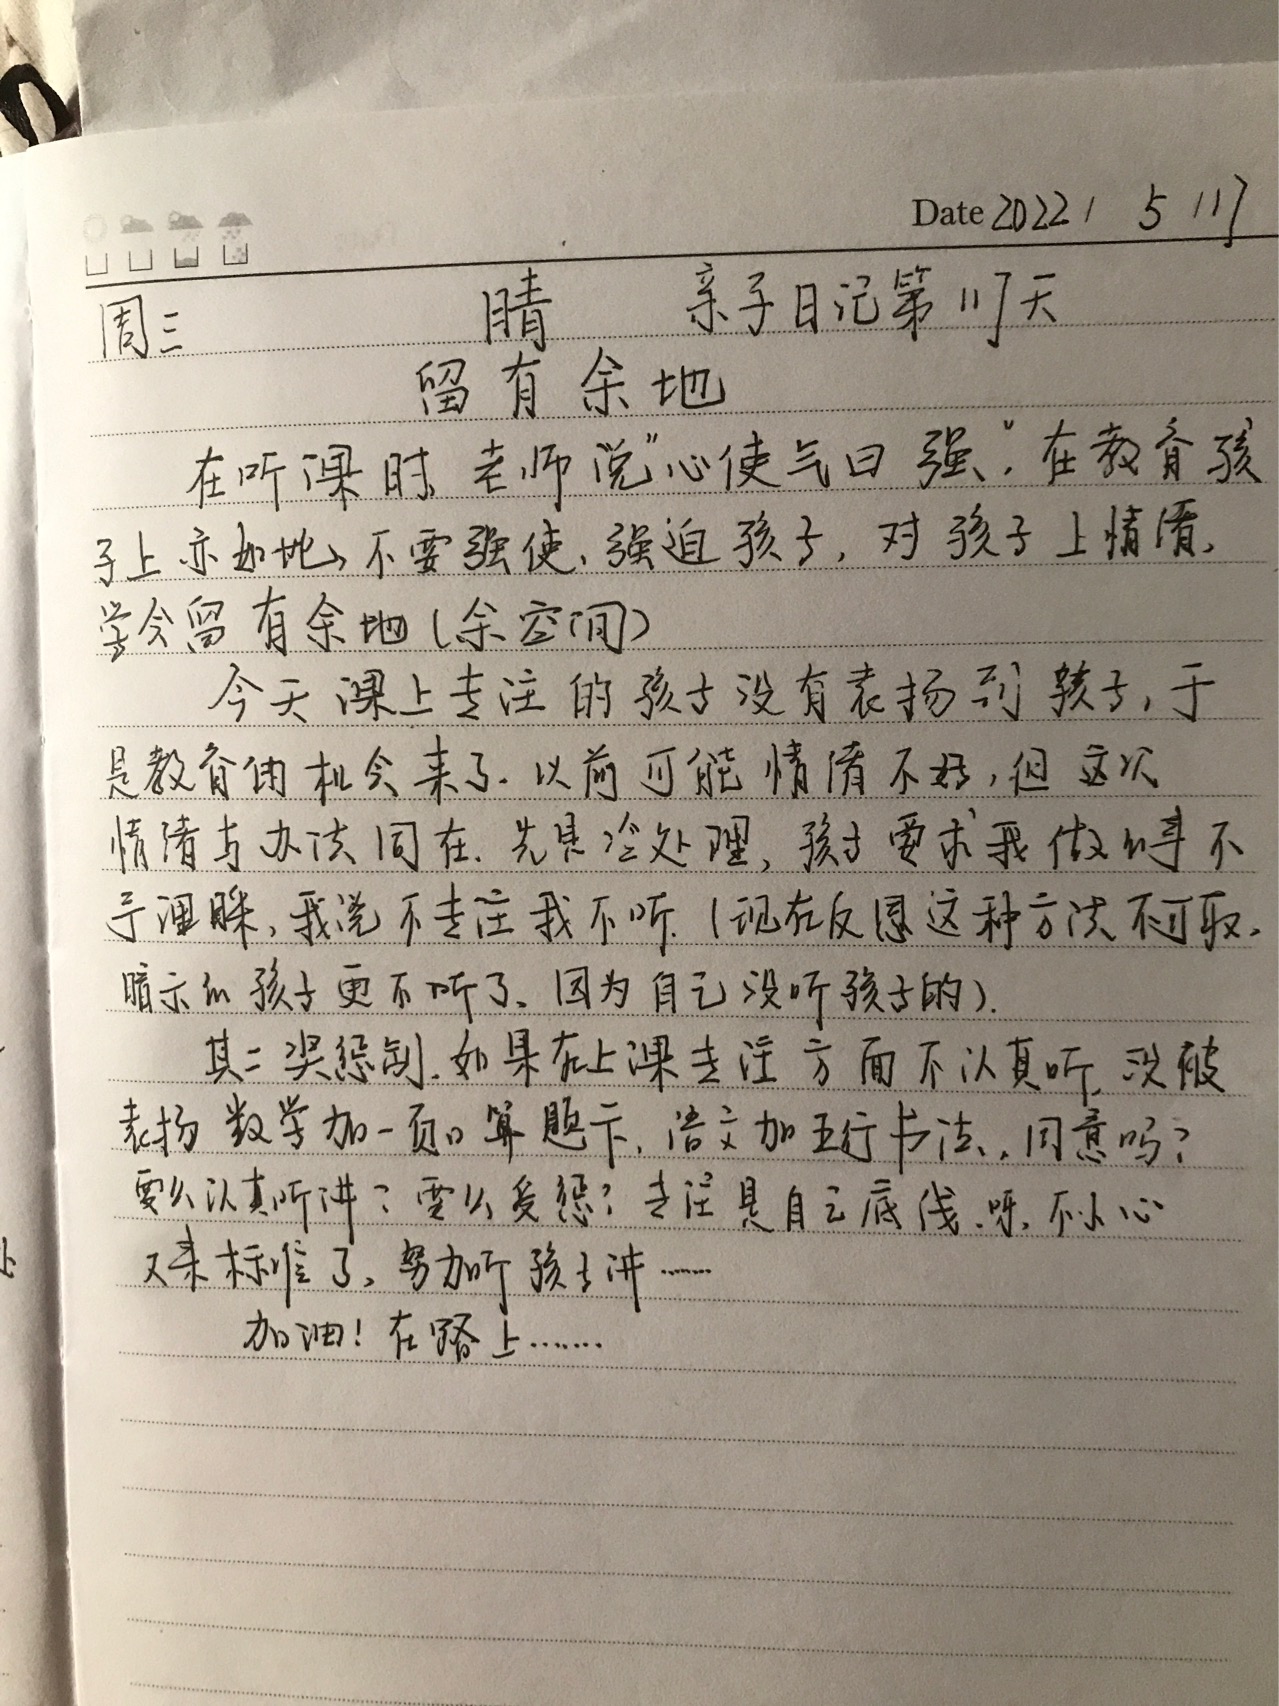 Date 2022 / 5 / 17
周三 晴 亲子日记第117天
留有余地
在听课时,老师说"心使气曰强",在教育孩
子上亦如此,不要强使、强迫孩子,对孩子上情绪,
学会留有余地(余空间)
今天课上专注的孩子没有表扬到孩子,于
是教育的机会来了.以前可能情绪不好,但这次
情绪与办法同在.先是冷处理,孩子要求我做的事不
予理睬,我说不专注我不听.(现在反思这种方法不可取.
暗示的孩子更不听了、因为自己没听孩子的).
其二奖惩制.如果在上课专注方面不认真听,没被
表扬数学加一页口算题卡,语文加五行书法,同意吗?
要么认真听讲?要么受惩?专注是自己底线.呀,不小心
又来标准了,努力听孩子讲……
加油!在路上……